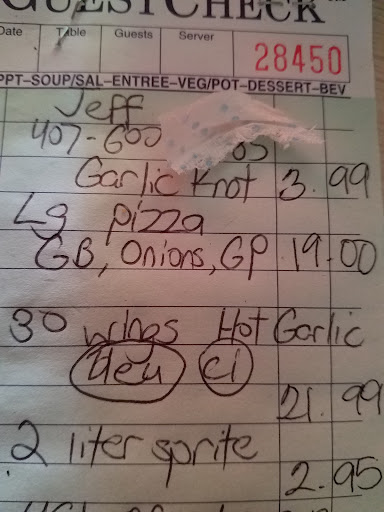 GUESTCHECK
Date Table Guests Server
28450
PPT-SOUP/SAL-ENTREE-VEG/POT-DESSERT-BEV
Jeff
407-600
Garlic Knot 3.99
Lg pizza
GB, Onions, GP 19.00
30 wings Hot Garlic
21.99
2 liter sprite
2.95